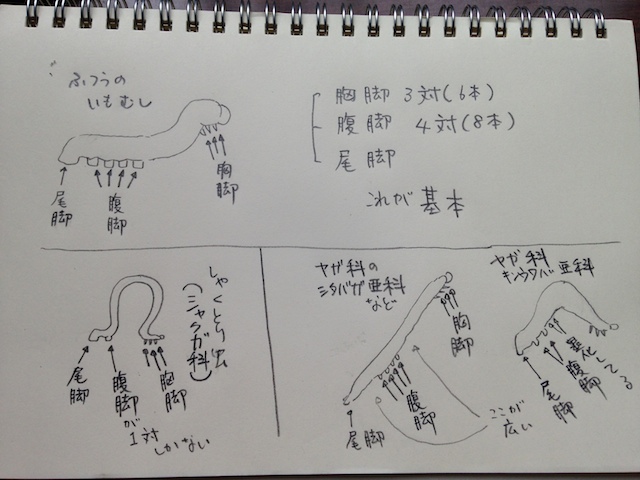 ふつうの
いもむし
尾脚
腹脚
胸脚
胸脚 3対(6本)
腹脚 4対(8本)
尾脚
これが基本
しゃくとり虫
(シャクガ科)
尾脚
腹脚が
1対
しかない
胸脚
ヤガ科の
シタバガ亜科
など
胸脚
腹脚
尾脚
ここが
広い
ヤガ科
キンウワバ亜科
尾脚
腹脚
退化してる